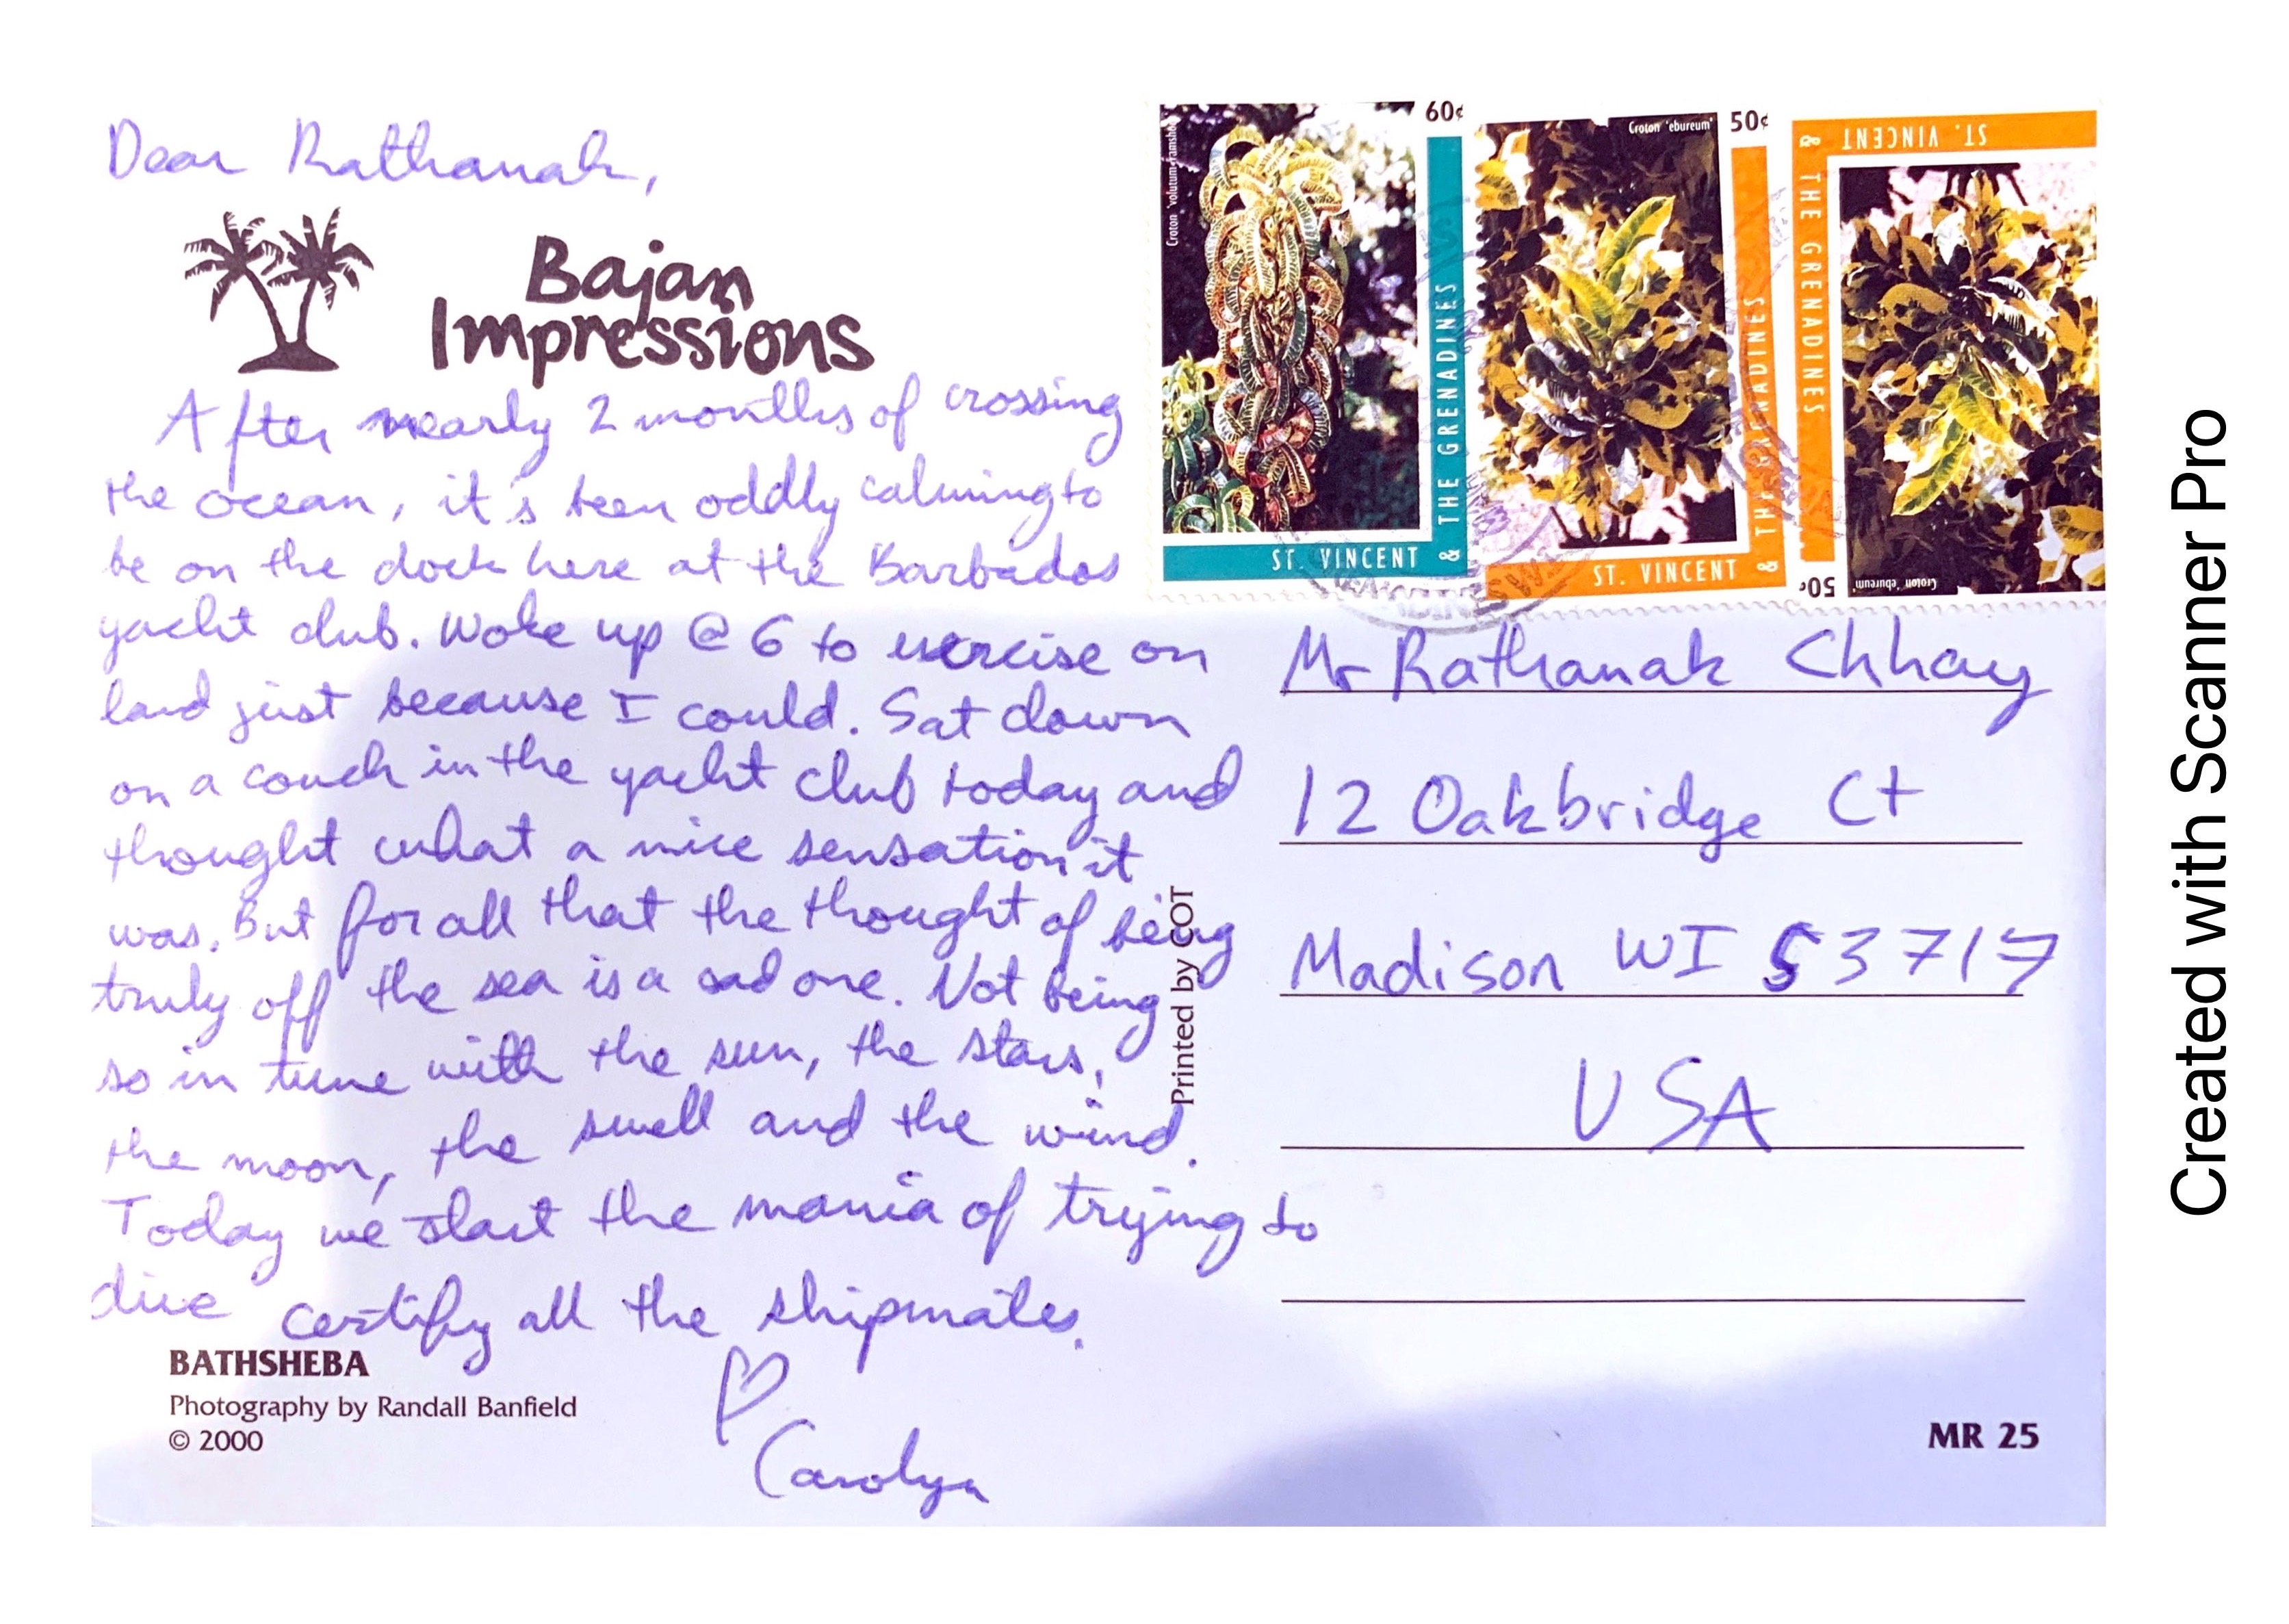 Dear Rathanak,
Bajan
Impressions
After nearly 2 months of crossing
the ocean, it's been oddly calming to
be on the dock here at the Barbados
yacht club. Woke up @ 6 to exercise on
land just because I could. Sat down
on a couch in the yacht club today and
thought what a nice sensation it
was. But for all that the thought of being
truly off the sea is a sad one. Not being
so in tune with the sun, the stars,
the moon, the swell and the wind.
Today we start the mania of trying to
dive certify all the shipmates.
♡
Carolyn
BATHSHEBA
Photography by Randall Banfield
© 2000
Printed by COT
Croton 'volutum-ramshorn'
60¢
ST. VINCENT & THE GRENADINES
Croton 'ebureum'
50¢
ST. VINCENT & THE GRENADINES
Croton 'ebureum'
50¢
ST. VINCENT & THE GRENADINES
Mr Rathanak Chhay
12 Oakbridge Ct
Madison WI 53717
USA
MR 25
Created with Scanner Pro